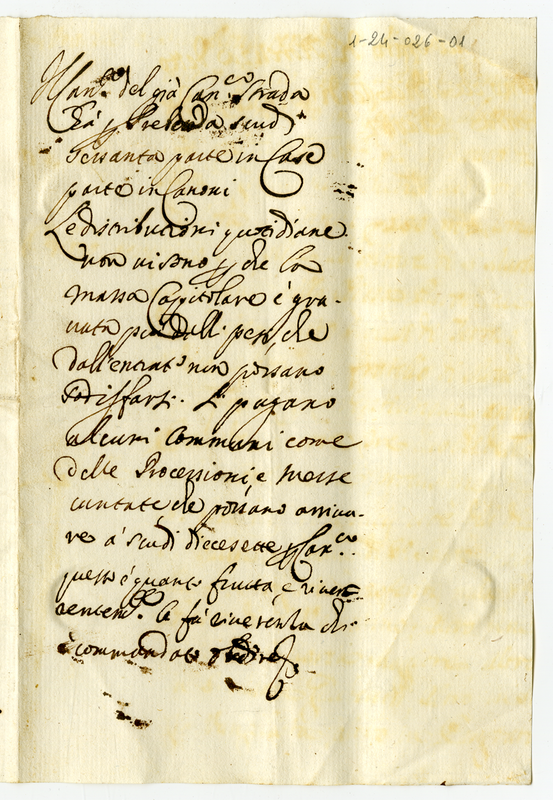 1-24-026-01
Il Can.to del già Can.co Strada
hà p Prebenda scudi
sessanta parte in Case
parte in Canoni
Le distribuzioni quotidiane
non ui sono, p che la
massa Capitolare è gra-
uata più dalli pesi, che
dall'entrate non possano
sodisfarsi. Si pagano
alcuni communi come
delle Processioni, e messe
cantate che possano arriua-
re à scudi diecesette p Can.co
questo è quanto frutta, e riuer
rentem.te le fà riuerenza chi
è commandato